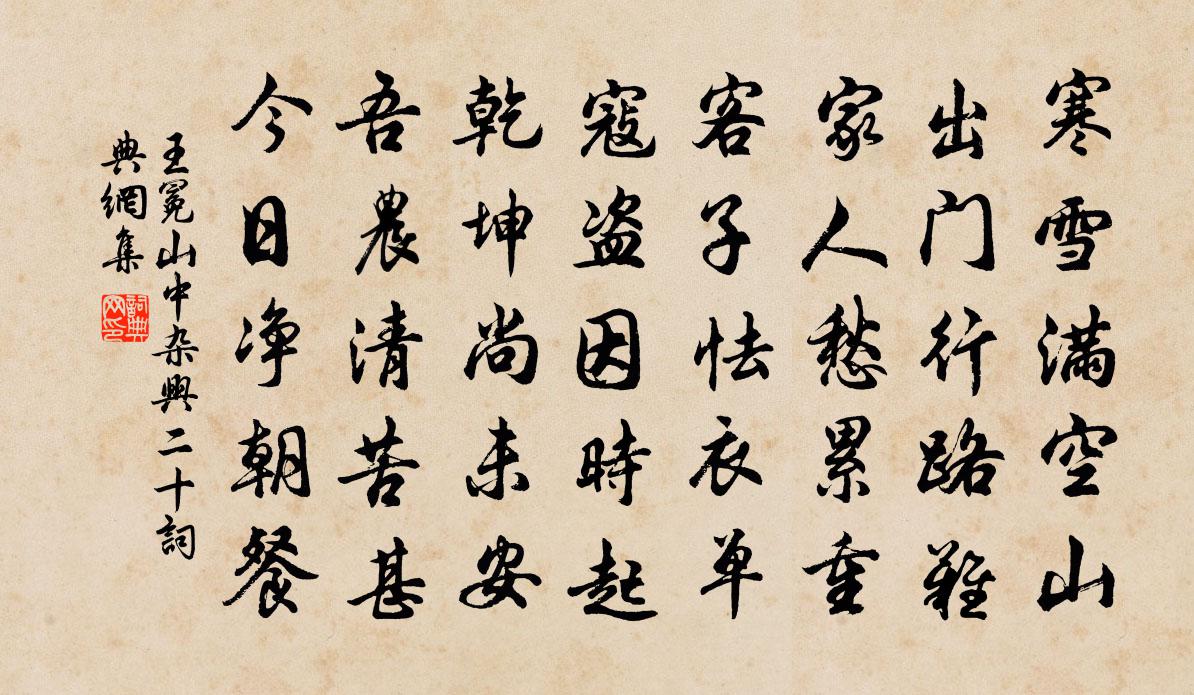 寒雪满空山
出门行路難
家人愁累重
客子怯衣单
寇盗因時起
乾坤尚未安
吾農清苦甚
今日净朝餐
王冕山中杂興二十詞
典網集
詞典网印